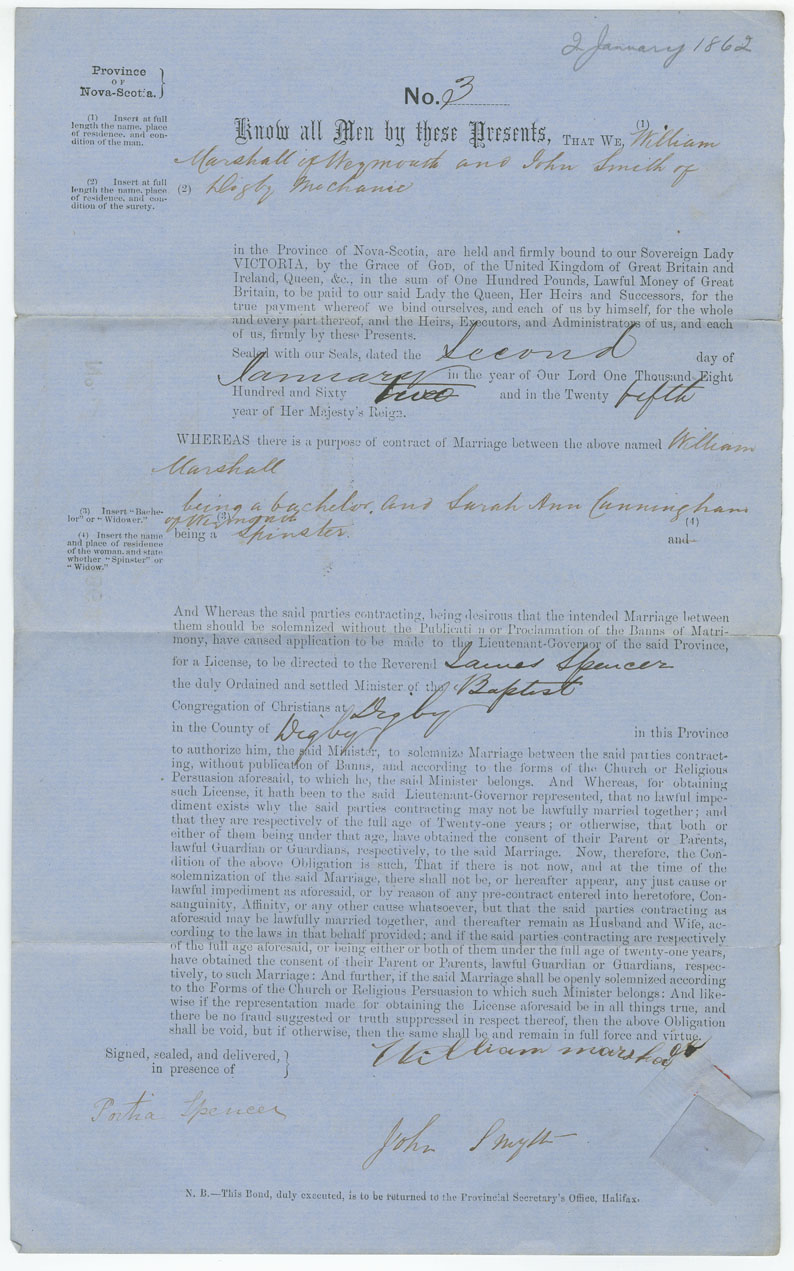 2 January 1862
Province
OF
Nova-Scotia.
No. 3
(1) Insert at full
length the name, place
of residence, and con-
dition of the man.
Know all Men by these Presents, THAT WE, (1) William
Marshall of Weymouth and John Smith of
(2) Insert at full
length the name, place
of residence, and con-
dition of the surety.
(2) Digby Mechanic
in the Province of Nova-Scotia, are held and firmly bound to our Sovereign Lady
VICTORIA, by the Grace of GOD, of the United Kingdom of Great Britain and
Ireland, Queen, &c., in the sum of One Hundred Pounds, Lawful Money of Great
Britain, to be paid to our said Lady the Queen, Her Heirs and Successors, for the
true payment whereof we bind ourselves, and each of us by himself, for the whole
and every part thereof, and the Heirs, Executors, and Administrators of us, and each
of us, firmly by these Presents.
Sealed with our Seals, dated the Second day of
January in the year of Our Lord One Thousand Eight
Hundred and Sixty two and in the Twenty fifth
year of Her Majesty's Reign.
WHEREAS there is a purpose of contract of Marriage between the above named William
Marshall
(3) Insert "Bache-
lor" or "Widower."
being a bachelor, and Sarah Ann Cunningham
of Weymouth (3) (4)
being a Spinster. and
(4) Insert the name
and place of residence
of the woman, and state
whether "Spinster" or
"Widow."
And Whereas the said parties contracting, being desirous that the intended Marriage between
them should be solemnized without the Publicati n or Proclamation of the Banns of Matri-
mony, have caused application to be made to the Lieutenant-Governor of the said Province,
for a License, to be directed to the Reverend James Spencer
the duly Ordained and settled Minister of the Baptist
Congregation of Christians at Digby
in the County of Digby in this Province
to authorize him, the said Minister, to solemnize Marriage between the said parties contract-
ing, without publication of Banns, and according to the forms of the Church or Religious
Persuasion aforesaid, to which he, the said Minister belongs. And Whereas, for obtaining
such License, it hath been to the said Lieutenant-Governor represented, that no lawful impe-
diment exists why the said parties contracting may not be lawfully married together; and
that they are respectively of the full age of Twenty-one years; or otherwise, that both or
either of them being under that age, have obtained the consent of their Parent or Parents,
lawful Guardian or Guardians, respectively, to the said Marriage. Now, therefore, the Con-
dition of the above Obligation is such, That if there is not now, and at the time of the
solemnization of the said Marriage, there shall not be, or hereafter appear, any just cause or
lawful impediment as aforesaid, or by reason of any pre-contract entered into heretofore, Con-
sanguinity, Affinity, or any other cause whatsoever, but that the said parties contracting as
aforesaid may be lawfully married together, and thereafter remain as Husband and Wife, ac-
cording to the laws in that behalf provided; and if the said parties contracting are respectively
of the full age aforesaid, or being either or both of them under the full age of twenty-one years,
have obtained the consent of their Parent or Parents, lawful Guardian or Guardians, respec-
tively, to such Marriage: And further, if the said Marriage shall be openly solemnized according
to the Forms of the Church or Religious Persuasion to which such Minister belongs: And like-
wise if the representation made for obtaining the License aforesaid be in all things true, and
there be no fraud suggested or truth suppressed in respect thereof, then the above Obligation
shall be void, but if otherwise, then the same shall be and remain in full force and virtue.
Signed, sealed, and delivered,
in presence of
William marshal
Portia Spencer
John Smyth
N. B.—This Bond, duly executed, is to be returned to the Provincial Secretary's Office, Halifax.